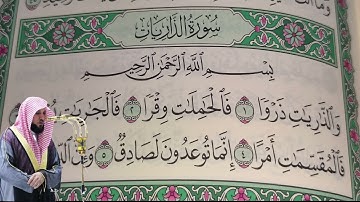 سُورَةُ الذَّارِيَاتِ
بِسْمِ اللَّهِ الرَّحْمَٰنِ الرَّحِيمِ
وَالذَّٰرِيَٰتِ ذَرْوًا ١ فَالْحَٰمِلَٰتِ وِقْرًا ٢ فَالْجَٰرِيَٰتِ
فَالْمُقَسِّمَٰتِ أَمْرًا ٤ إِنَّمَا تُوعَدُونَ لَصَادِقٌ ٥